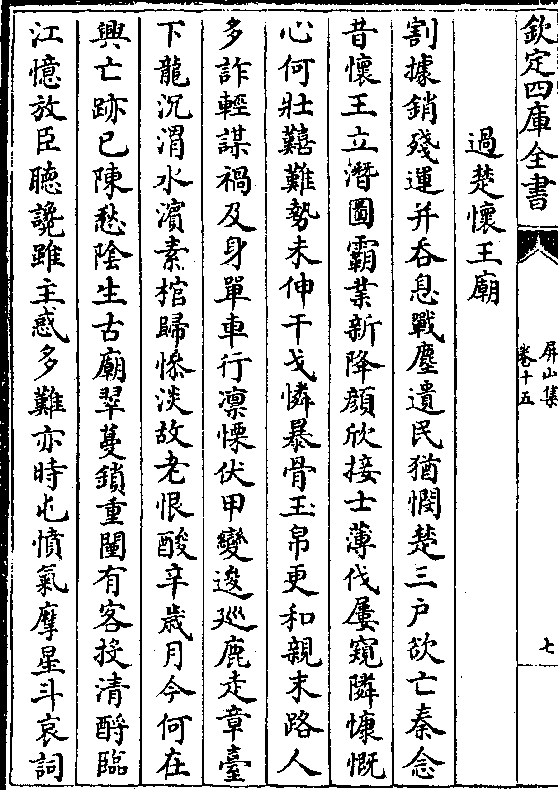 欽定四庫全書
屏山集
卷十五
七
過楚懷王廟
割據銷殘運并吞息戰塵遺民猶憫楚三户欲亡秦念
昔懷王立潛圖霸業新降顔欣接士薄伐屢窺隣慷慨
心何壯囏難勢未伸干戈憐暴骨玉帛更和親末路人
多詐輕謀禍及身單車行凛慄伏甲變逡廵鹿走章臺
下龍沉渭水濵素棺歸慘淡故老恨酸辛歳月今何在
興亡跡已陳愁陰生古廟翠蔓鎖重闉有客投清酹臨
江憶放臣聴讒雖主惑多難亦時屯憤氣摩星斗哀詞